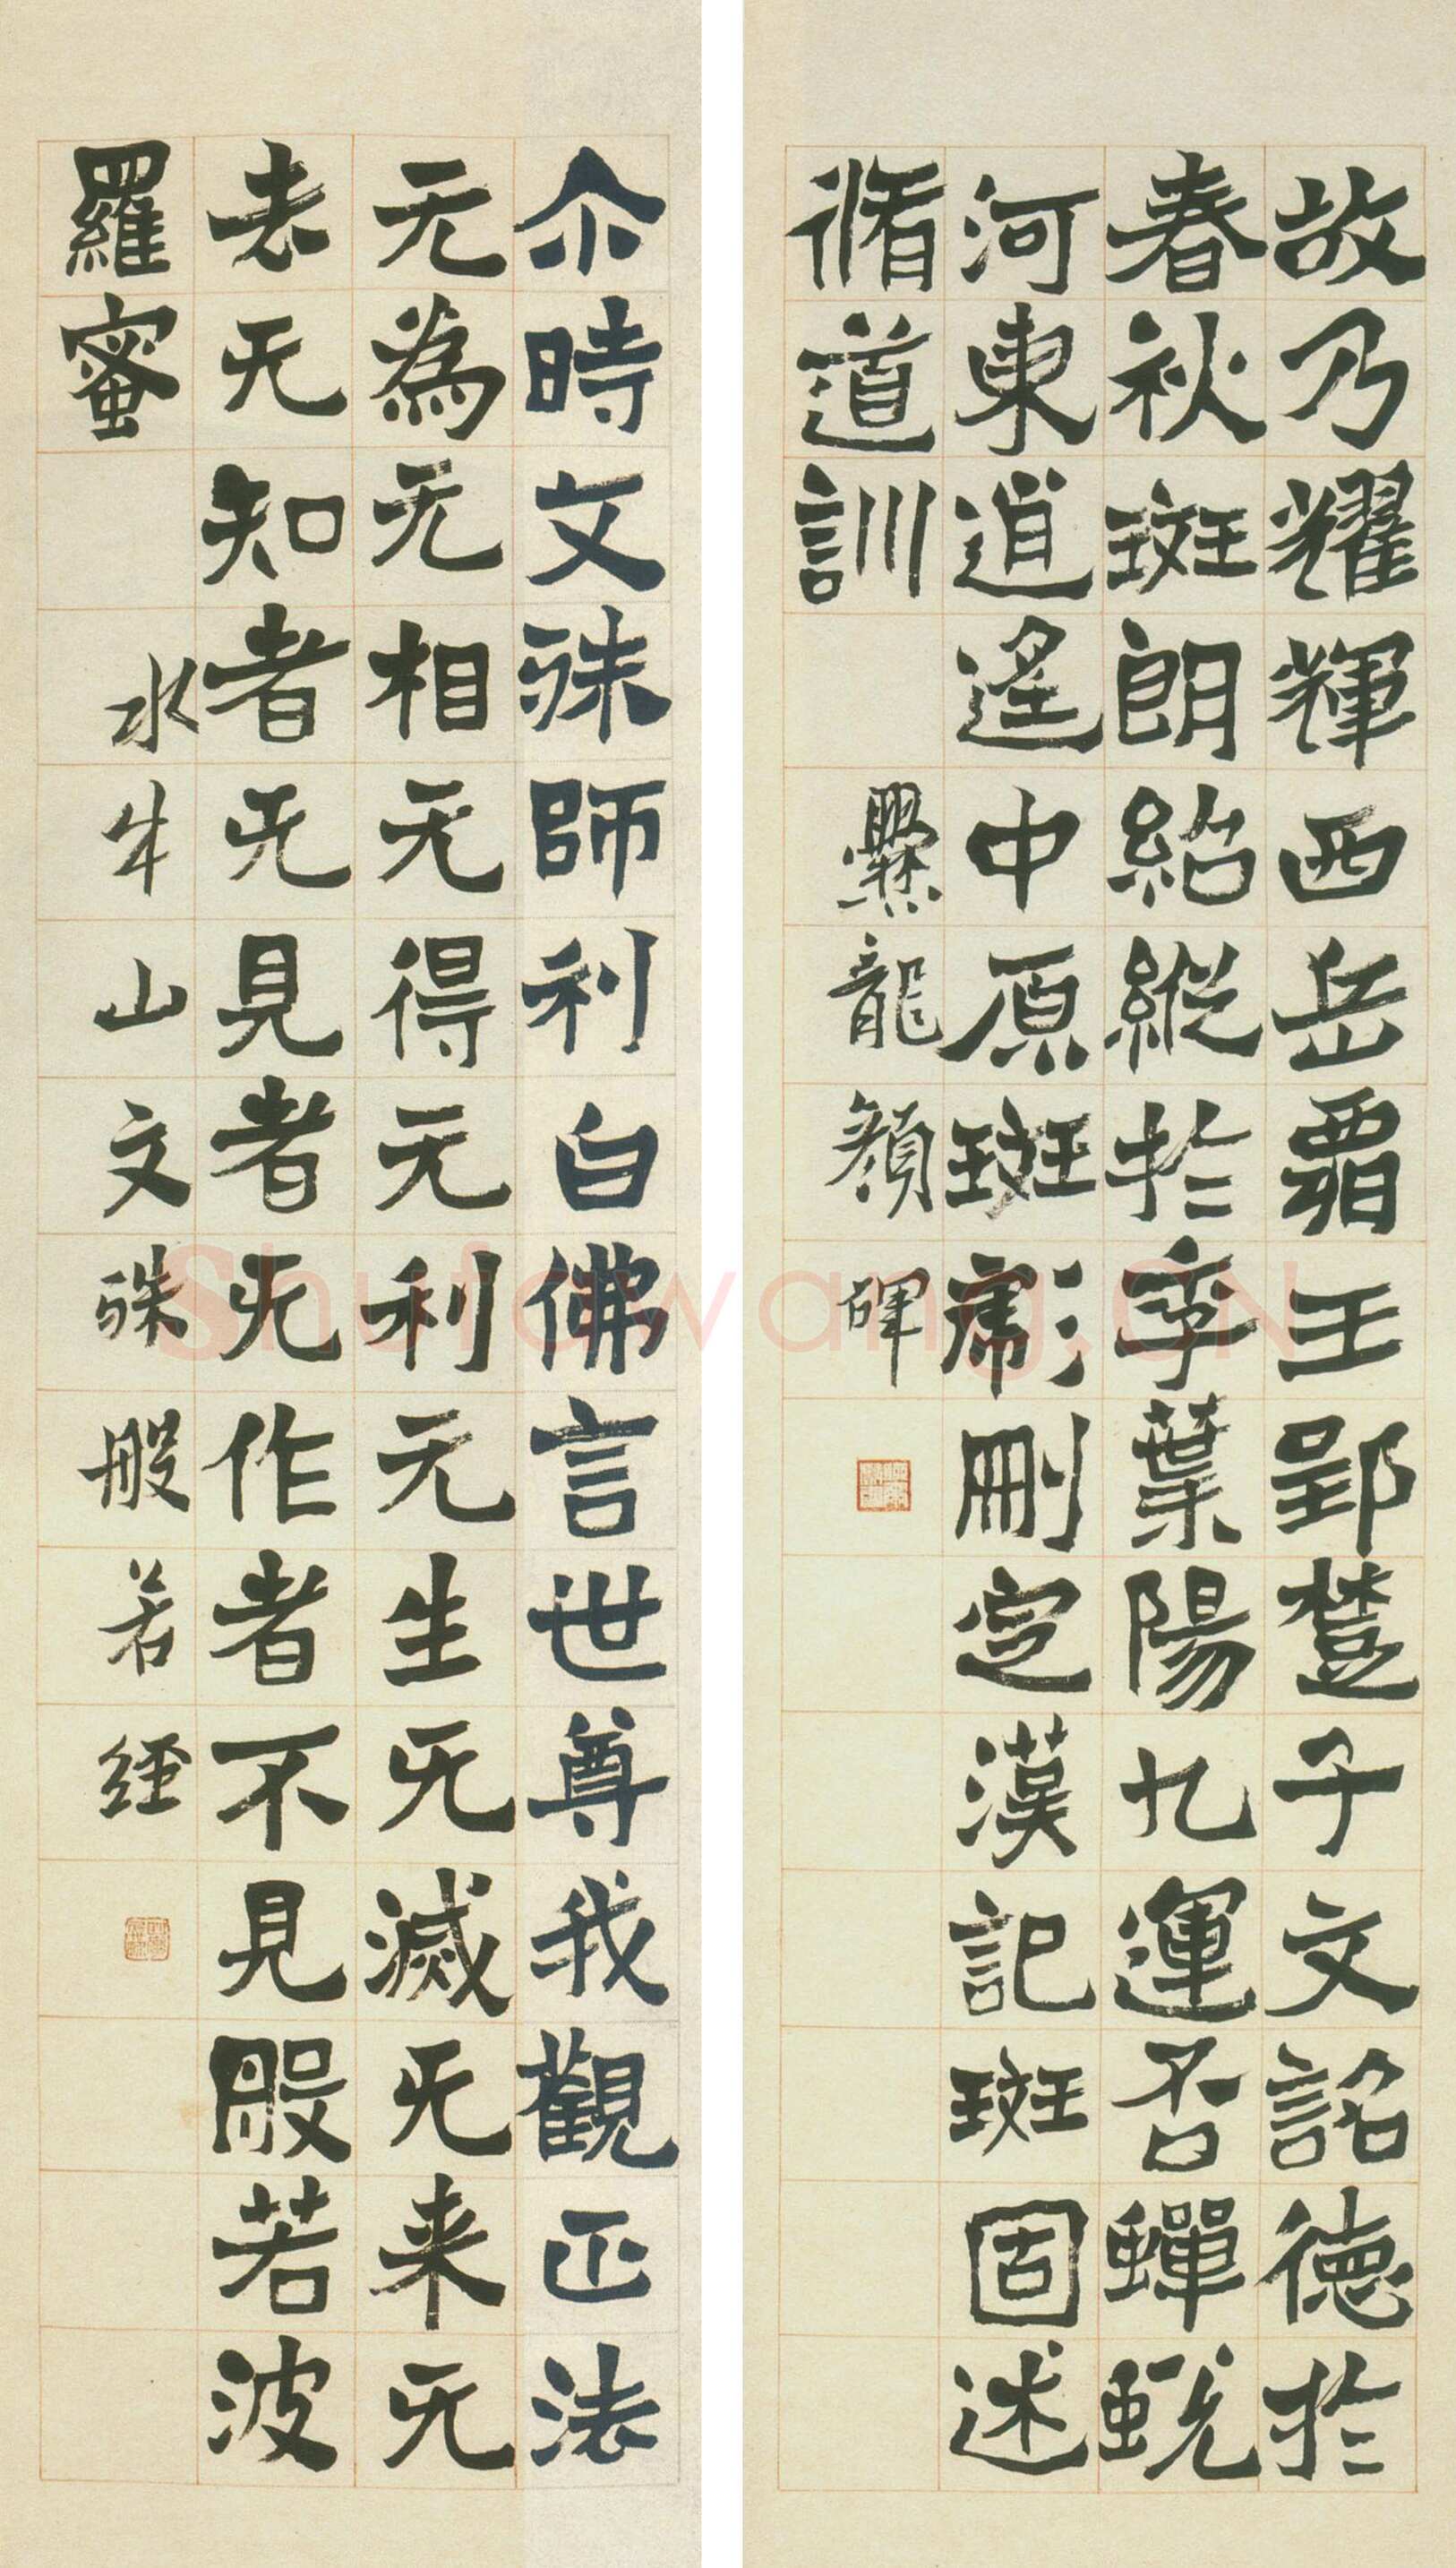 故乃耀輝西岳霸王郢楚子文詺德於
春秋斑朗紹縱於季葉陽九運否蟬蛻
河東逍遙中原斑彪刪定漢記斑固述
脩道訓
爨龍顏碑
尒時文殊師利白佛言世尊我觀正法
无為无相无得无利无生无滅无来无
去无知者无見者无作者不見般若波
羅蜜
水牛山文殊般若經
Shufawang.CN